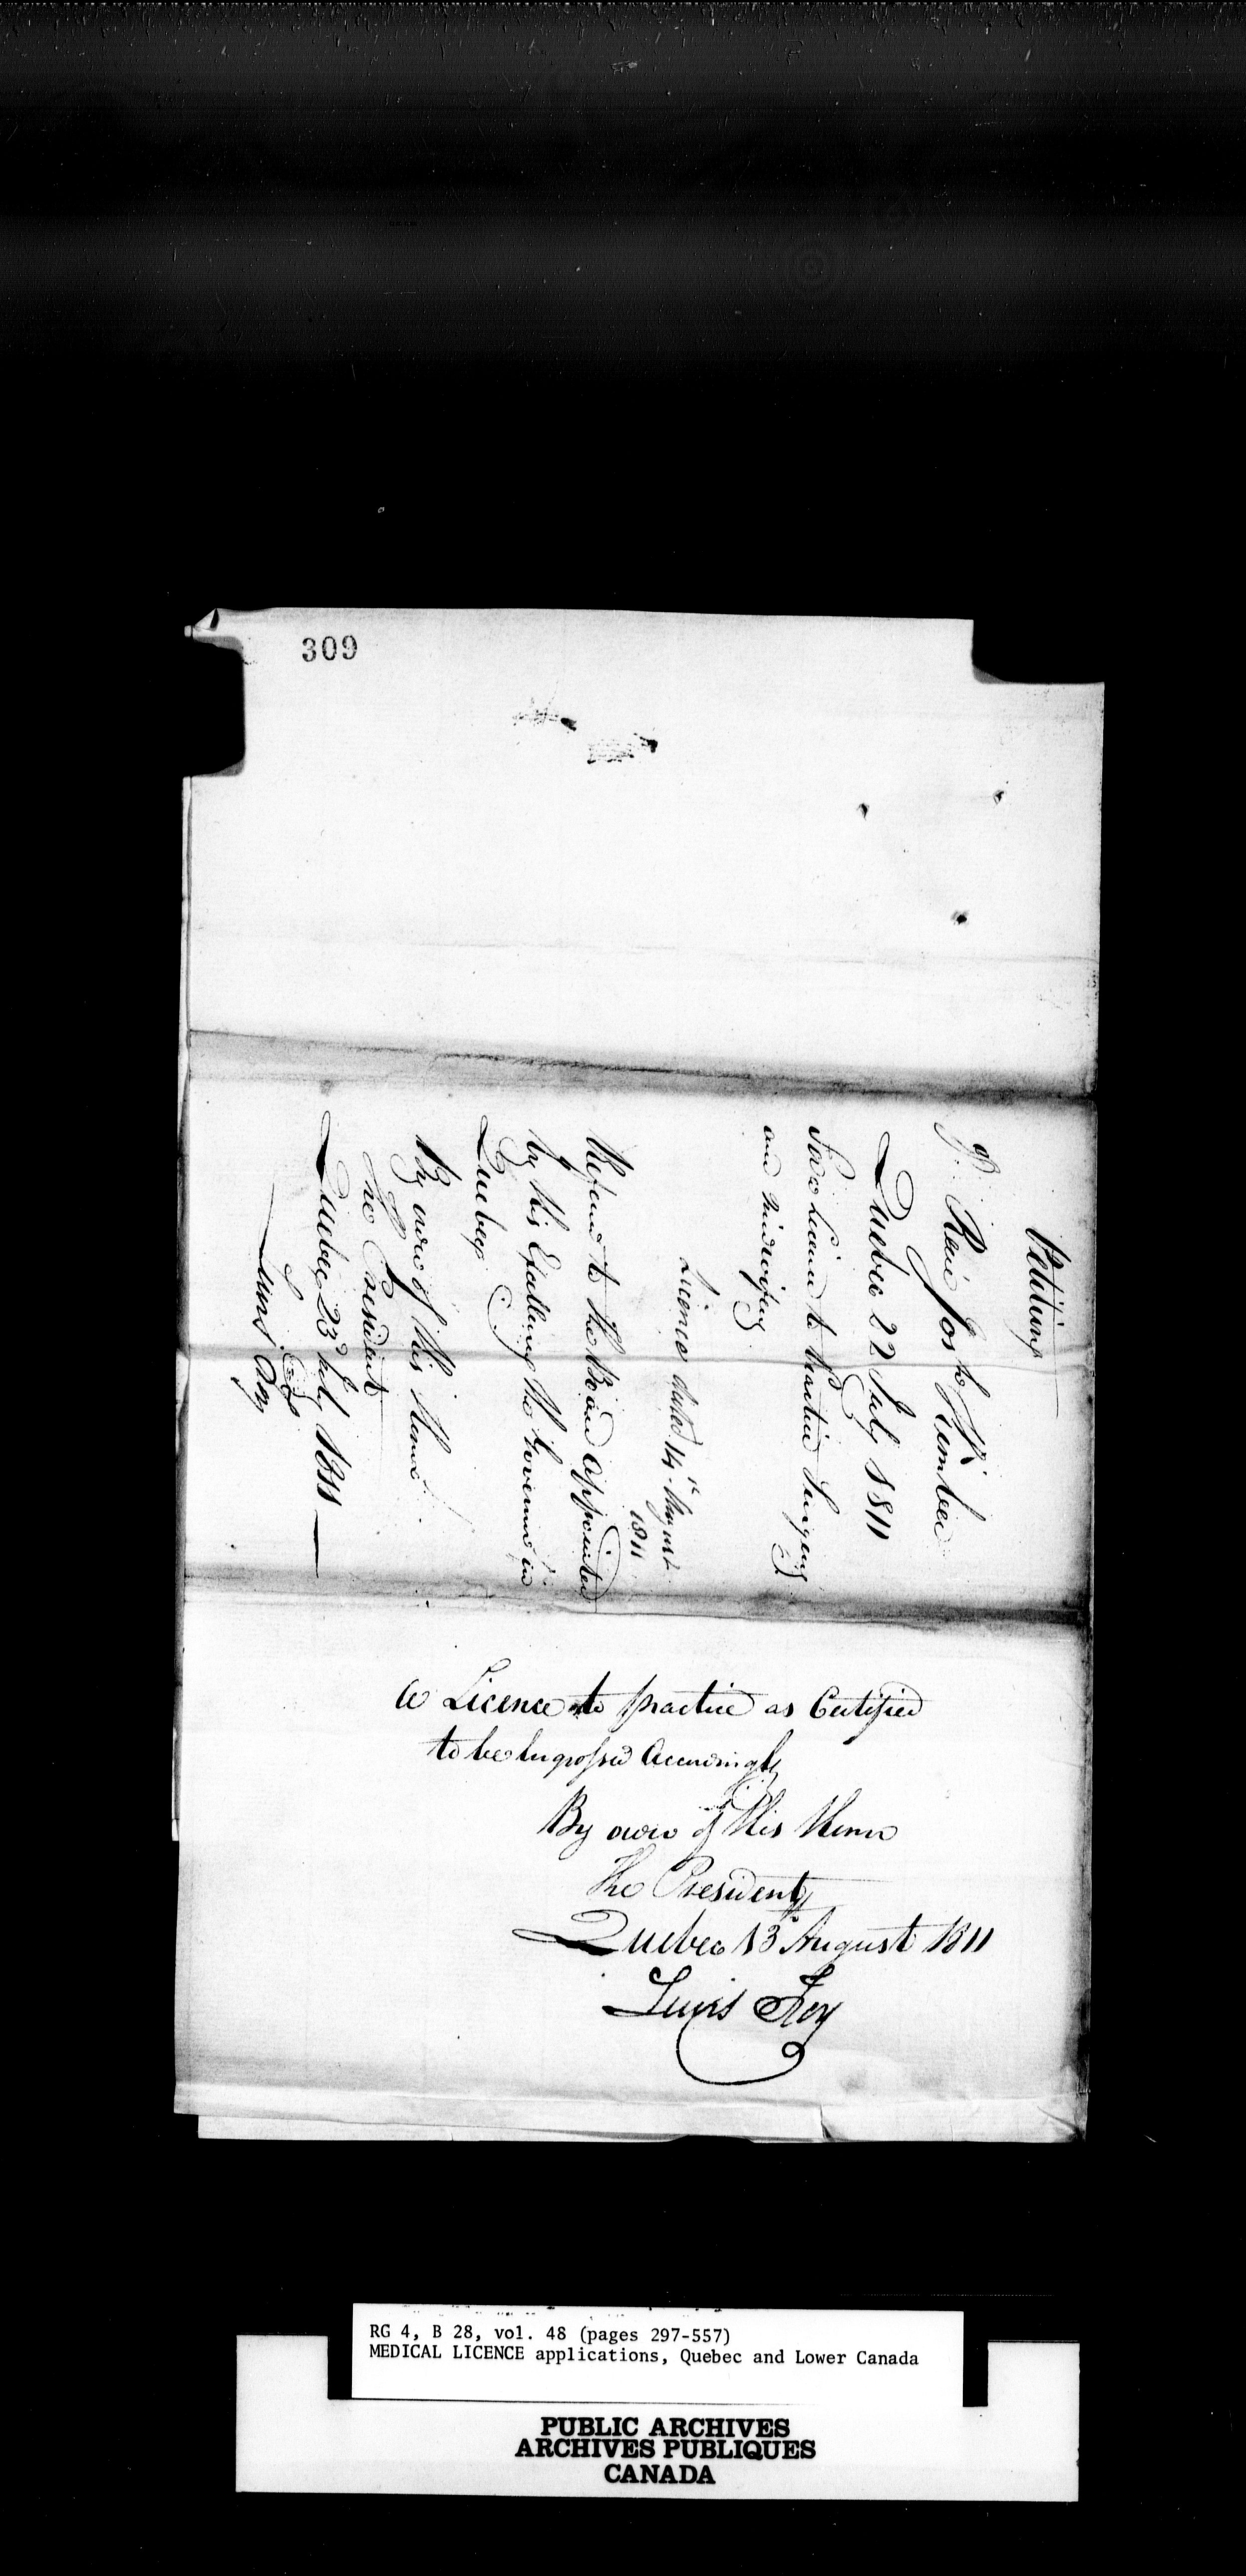 309
Petition
of René Josh Kimber
Quebec 22 July 1811
For a Licence to Practice Surgery
and Midwifery
Licence dated 14th August
1811
Referred to the Board appointed
by His Excellency the Governor in
Quebec
By order of His Honor
The President
Quebec 23d July 1811
Louis Foy
A Licence to practice as Certified
to be Engrossed Accordingly
By order of His Honor
The President
Quebec 13 August 1811
Louis Foy
RG 4, B 28, vol. 48 (pages 297-557)
MEDICAL LICENCE applications, Quebec and Lower Canada
PUBLIC ARCHIVES
ARCHIVES PUBLIQUES
CANADA